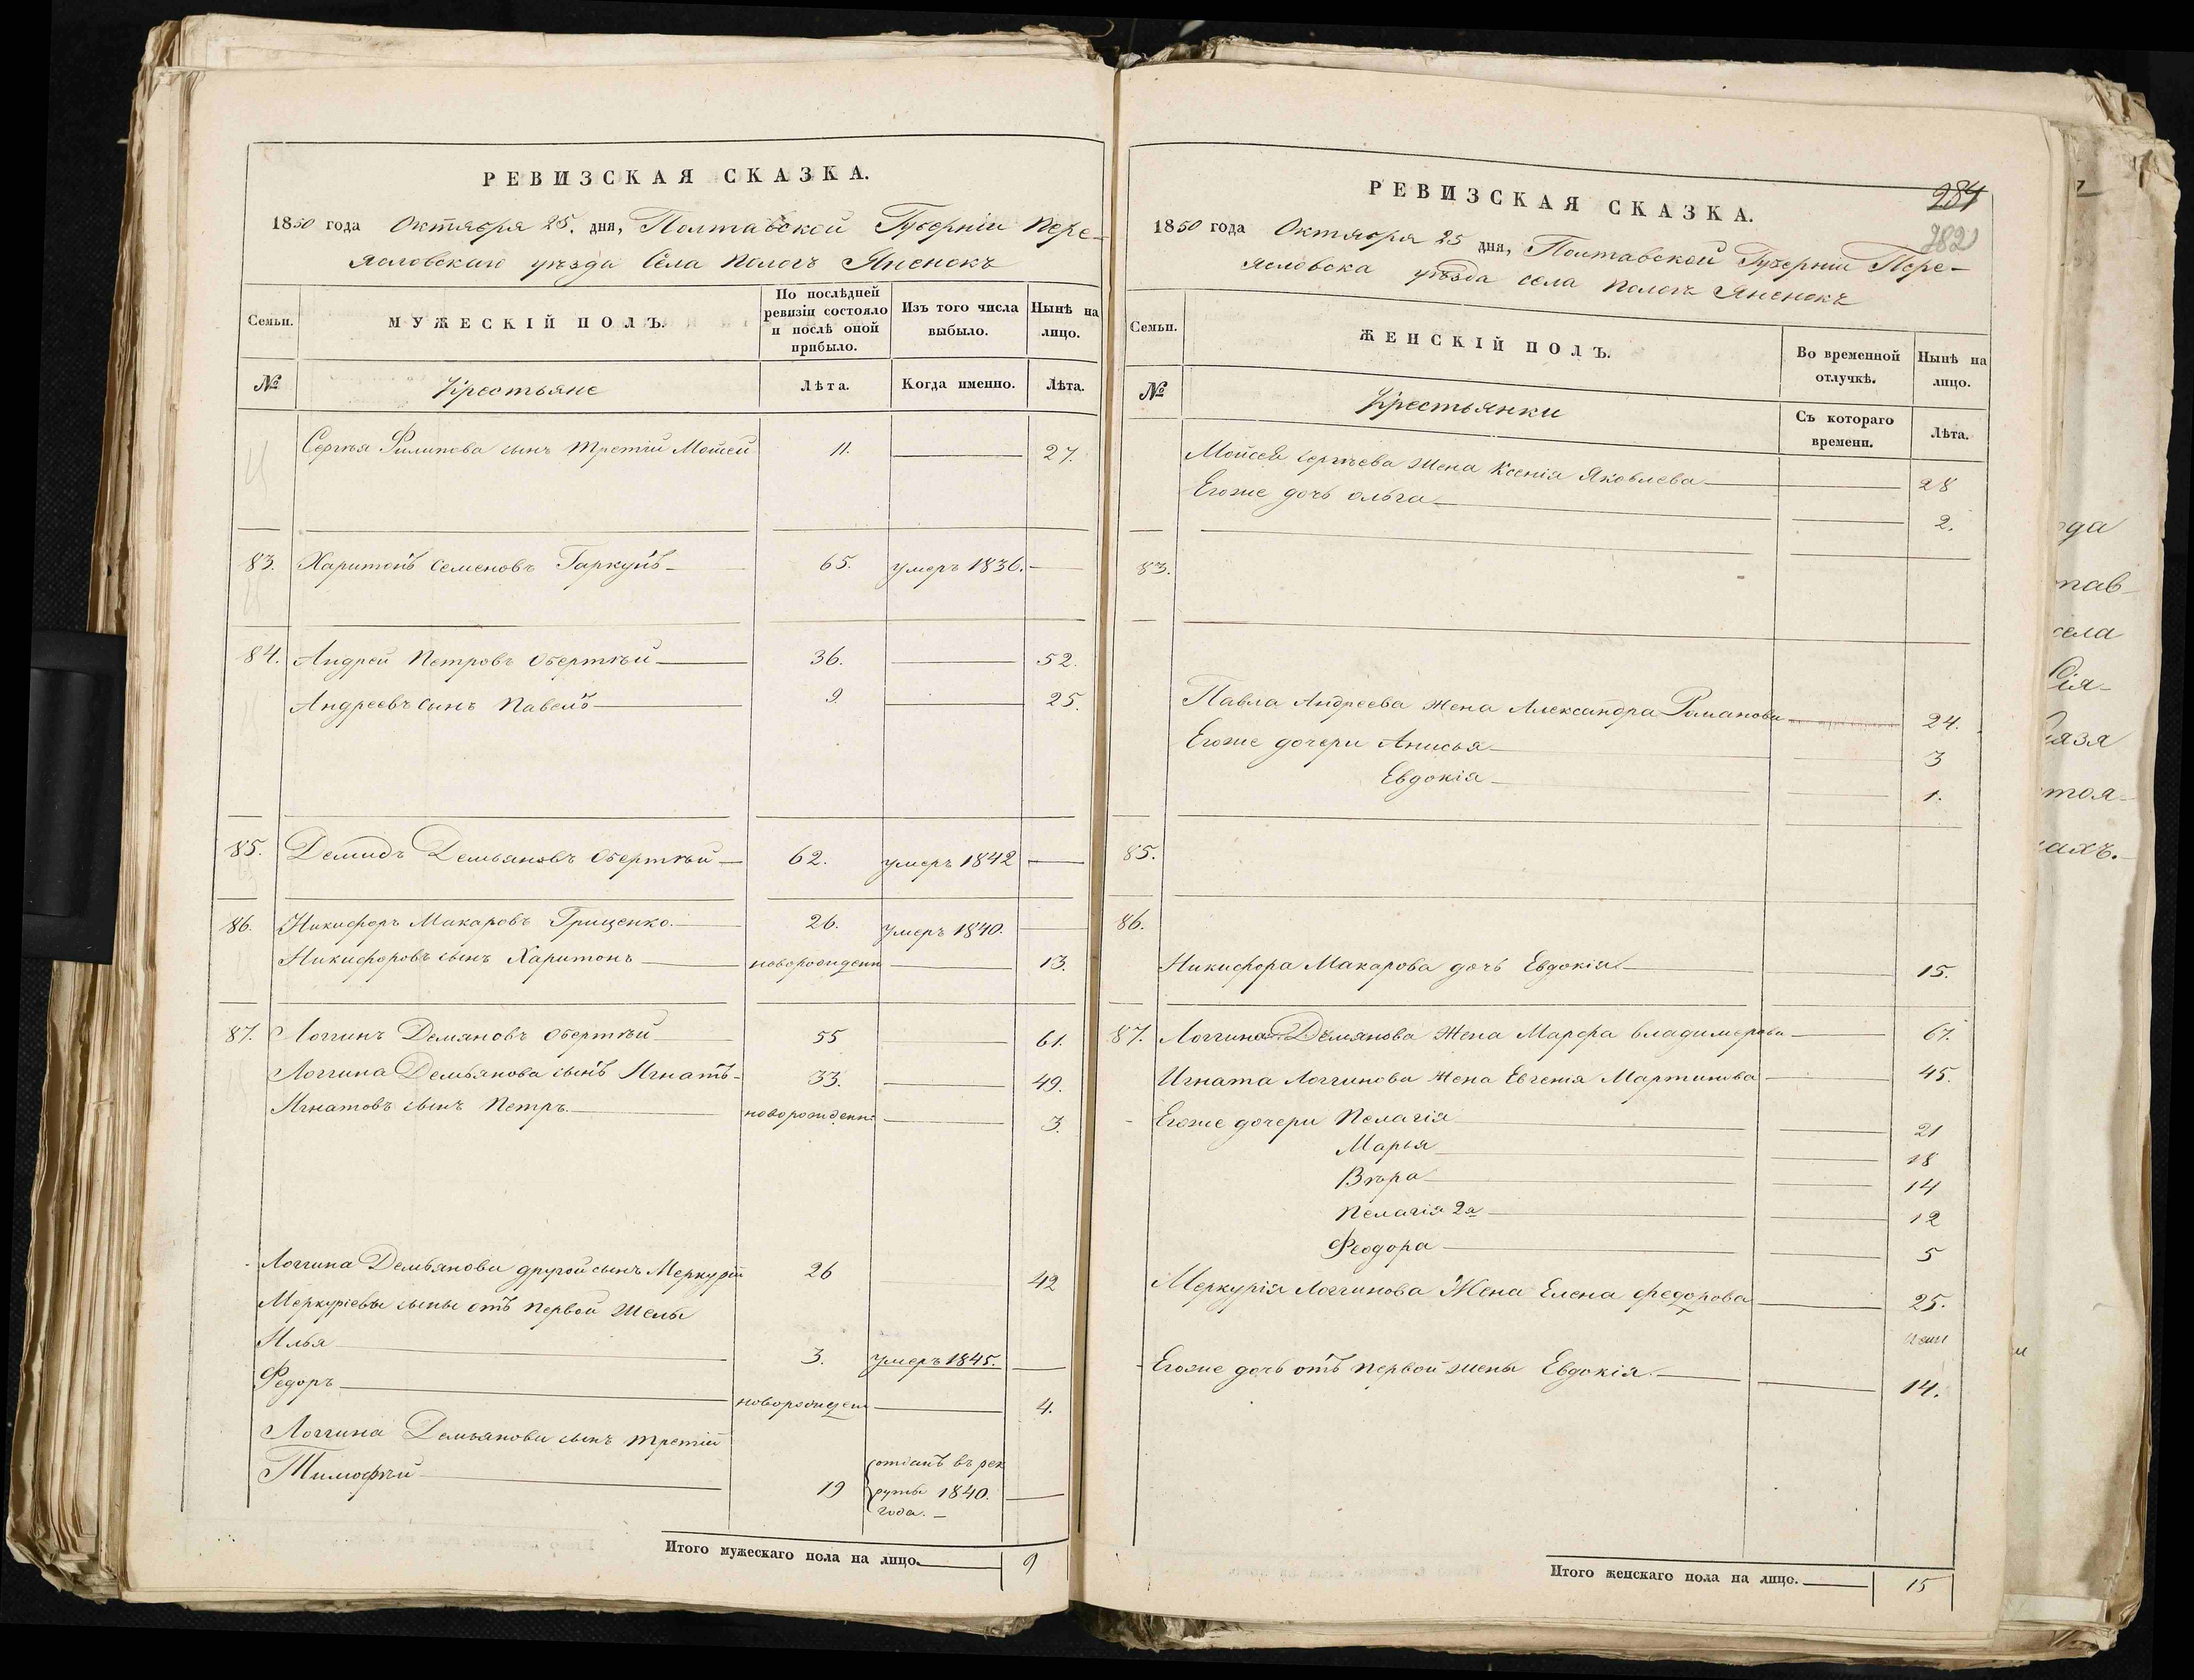 РЕВИЗСКАЯ СКАЗКА.
1850 года Октября 25. дня, Полтавской Губерніи Пере-
яславскаго уѣзда Села Пологъ Яненокъ
Семьи.
МУЖЕСКІЙ ПОЛЪ.
По послѣдней
ревизіи состояло
и послѣ оной
прибыло.
Изъ того числа
выбыло.
Нынѣ на
лицо.
№
Крестьяне
Лѣта.
Когда именно.
Лѣта.
Сергѣя Филипова сынъ третій Мойсей 11. 27.
83. Харитонъ Семеновъ 65. умеръ 1836.
84. Андрей Петровъ Обертѣй 36. 52.
Андреевъ сынъ Павелъ 9. 25.
85. Демидъ Демьяновъ Обертѣй 62. умеръ 1842
86. Никифоръ Макаровъ Грищенко. 26. умеръ 1840.
Никифоровъ сынъ Харитонъ новорожденн 13.
87. Логгинъ Демяновъ Обертѣй 55 61.
Логгина Демьянова сынъ Игнатъ 33. 49.
Игнатовъ сынъ Петръ. новорожденн: 3.
Логгина Демьянова другой сынъ Меркурій 26 42
Меркуріевы сыны отъ первой жены
Илья 3. умеръ 1845.
Федоръ новорожден 4.
Логгина Демьянова сынъ третій
Тимофѣй 19 отданъ въ рек
руты 1840.
года.
Итого мужескаго пола на лицо. 9
284
782
РЕВИЗСКАЯ СКАЗКА.
1850 года Октября 25 дня, Полтавской Губерніи Пере-
яславска уѣзда села Пологъ Яненокъ
Семьи.
ЖЕНСКІЙ ПОЛЪ.
Во временной
отлучкѣ.
Нынѣ на
лицо.
№
Крестьянки
Съ котораго
времени.
Лѣта.
Мойсея Сергѣева жена Ксенія Яковлева 28
Егоже дочь Ольга 2.
83.
Павла Андреева жена Александра Романова 24.
Егоже дочери Анисья 3
Евдокія 1.
85.
86.
Никифора Макарова дочь Евдокія 15.
87. Логгина Демянова жена Марфа Владимерова 67.
Игната Логгинова жена Евгенія Мартинова 45.
Егоже дочери Пелагія 21
Марья 18
Вѣра 14
Пелагія 2я 12
Феодора 5
Меркурія Логгинова Жена Елена Федорова 25.
Егоже дочь отъ первой жены Евдокія. 14.
Итого женскаго пола на лицо. 15
ода
тав
села
язя
тоя-
ахъ.